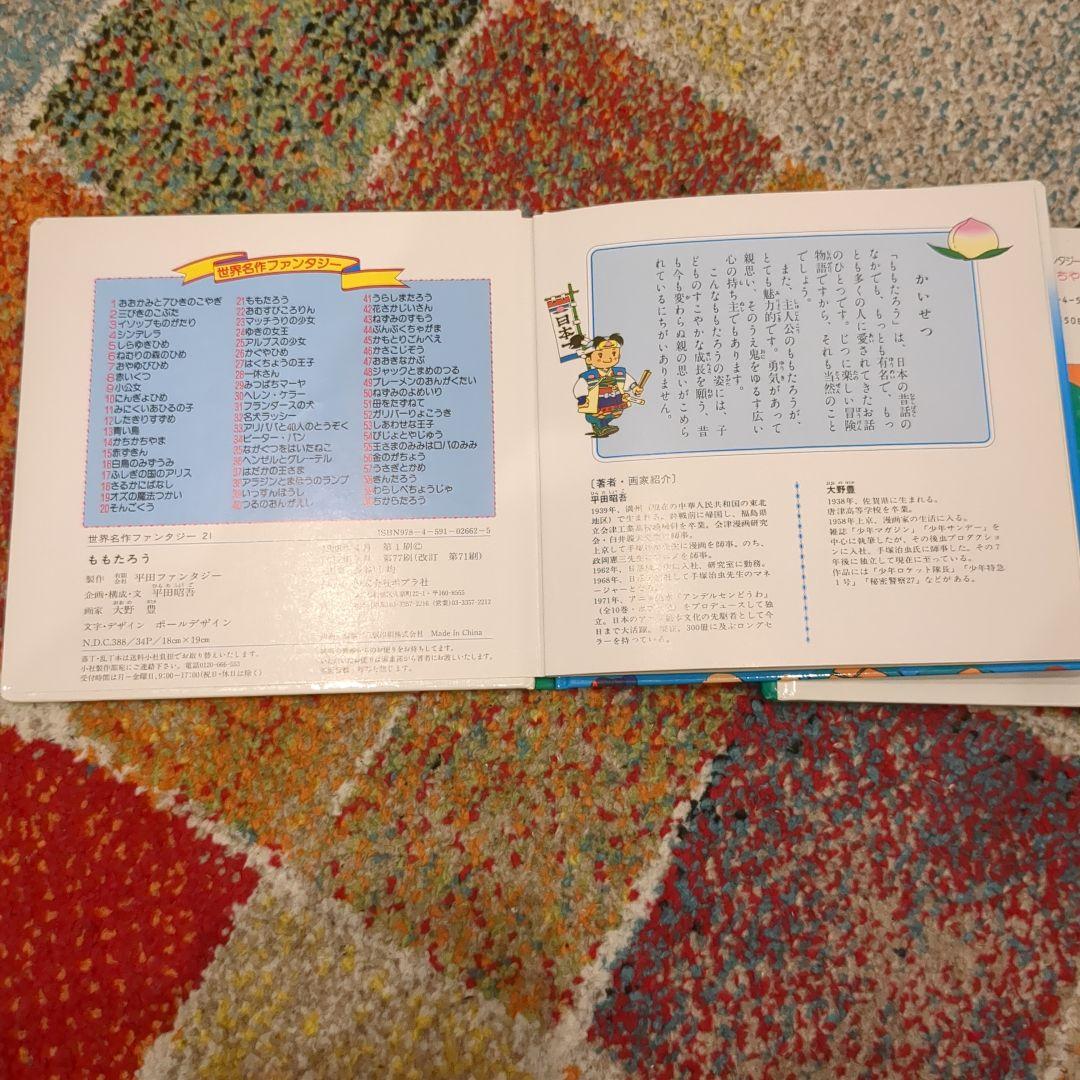 世界名作ファンタジー
1 おおかみと7ひきのこやぎ
2 三びきのこぶた
3 イソップものがたり
4 シンデレラ
5 しらゆきひめ
6 ねむりの森のひめ
7 おやゆびひめ
8 赤いくつ
9 小公女
10 にんぎょひめ
11 みにくいあひるの子
12 したきりすずめ
13 青い鳥
14 かちかちやま
15 赤ずきん
16 白鳥のみずうみ
17 ふしぎの国のアリス
18 さるかにばなし
19 オズの魔法つかい
20 そんごくう
21 ももたろう
22 おむすびころりん
23 マッチうりの少女
24 ゆきの女王
25 アルプスの少女
26 かぐやひめ
27 はくちょうの王子
28 一休さん
29 みつばちマーヤ
30 ヘレン・ケラー
31 フランダースの犬
32 名犬ラッシー
33 アリババと40人のとうぞく
34 ピーター・パン
35 ながぐつをはいたねこ
36 ヘンゼルとグレーテル
37 はだかの王さま
38 アラジンとまほうのランプ
39 いっすんぼうし
40 つるのおんがえし
41 うらしまたろう
42 花さかじいさん
43 ねずみのすもう
44 ぶんぶくちゃがま
45 かもとりごんべえ
46 かさこじぞう
47 おおきなかぶ
48 ジャックとまめのつる
49 ブレーメンのおんがくたい
50 ねずみのよめいり
51 母をたずねて
52 ガリバーりょこうき
53 しあわせな王子
54 びじょとやじゅう
55 王さまのみみはロバのみみ
56 金のがちょう
57 うさぎとかめ
58 きんたろう
59 わらしべちょうじゃ
60 ちからたろう
世界名作ファンタジー 21
ISBN978-4-591-02662-5
ももたろう
月 第1刷©
月 第77刷(改訂 第71刷)
製作 有限会社 平田ファンタジー
ひらたしょうご
企画・構成・文 平田昭吾
おおの ゆたか
画家 大野 豊
ポプラ社
文字・デザイン ポールデザイン
N.D.C.388/34P/18cm×19cm
印刷株式会社 Made in China
落丁・乱丁本は送料小社負担でお取り替えいたします。
小社製作部宛にご連絡下さい。電話0120-666-553
受付時間は月~金曜日、9:00~17:00(祝日・休日は除く)
かいせつ
「ももたろう」は、日本の昔話の
なかでも、もっとも有名で、もっ
とも多くの人に愛されてきたお話
のひとつです。じつに楽しい冒険
物語ですから、それも当然のこと
でしょう。
また、主人公のももたろうが、
とても魅力的です。勇気があって
親思い、そのうえ鬼をゆるす広い
心の持ち主でもあります。
こんなももたろうの姿には、子
どものすこやかな成長を願う、昔
も今も変わらぬ親の思いがこめら
れているにちがいありません。
日本一
[著者・画家紹介]
ひらたしょうご
平田昭吾
1939年、満州(現在の中華人民共和国の東北
地区)で生まれる。終戦前に帰国し、福島県
立会津工業高校機械科を卒業。会津漫画研究
上京して手塚治虫先生に漫画を師事。のち、
1971年、アニメ絵本「アンデルセンどうわ」
をプロデュースして独
今日まで大活躍。
300冊に及ぶロングセ
ラーを持っている。
おおのゆたか
大野豊
1938年、佐賀県に生まれる。
唐津高等学校を卒業。
1958年上京、漫画家の生活に入る。
雑誌「少年マガジン」「少年サンデー」を
中心に執筆したが、その後虫プロダクショ
ンに入社、手塚治虫氏に師事した。その7
年後に独立して現在に至っている。
作品には「少年ロケット隊長」「少年特急
1号」「秘密警察27」などがある。